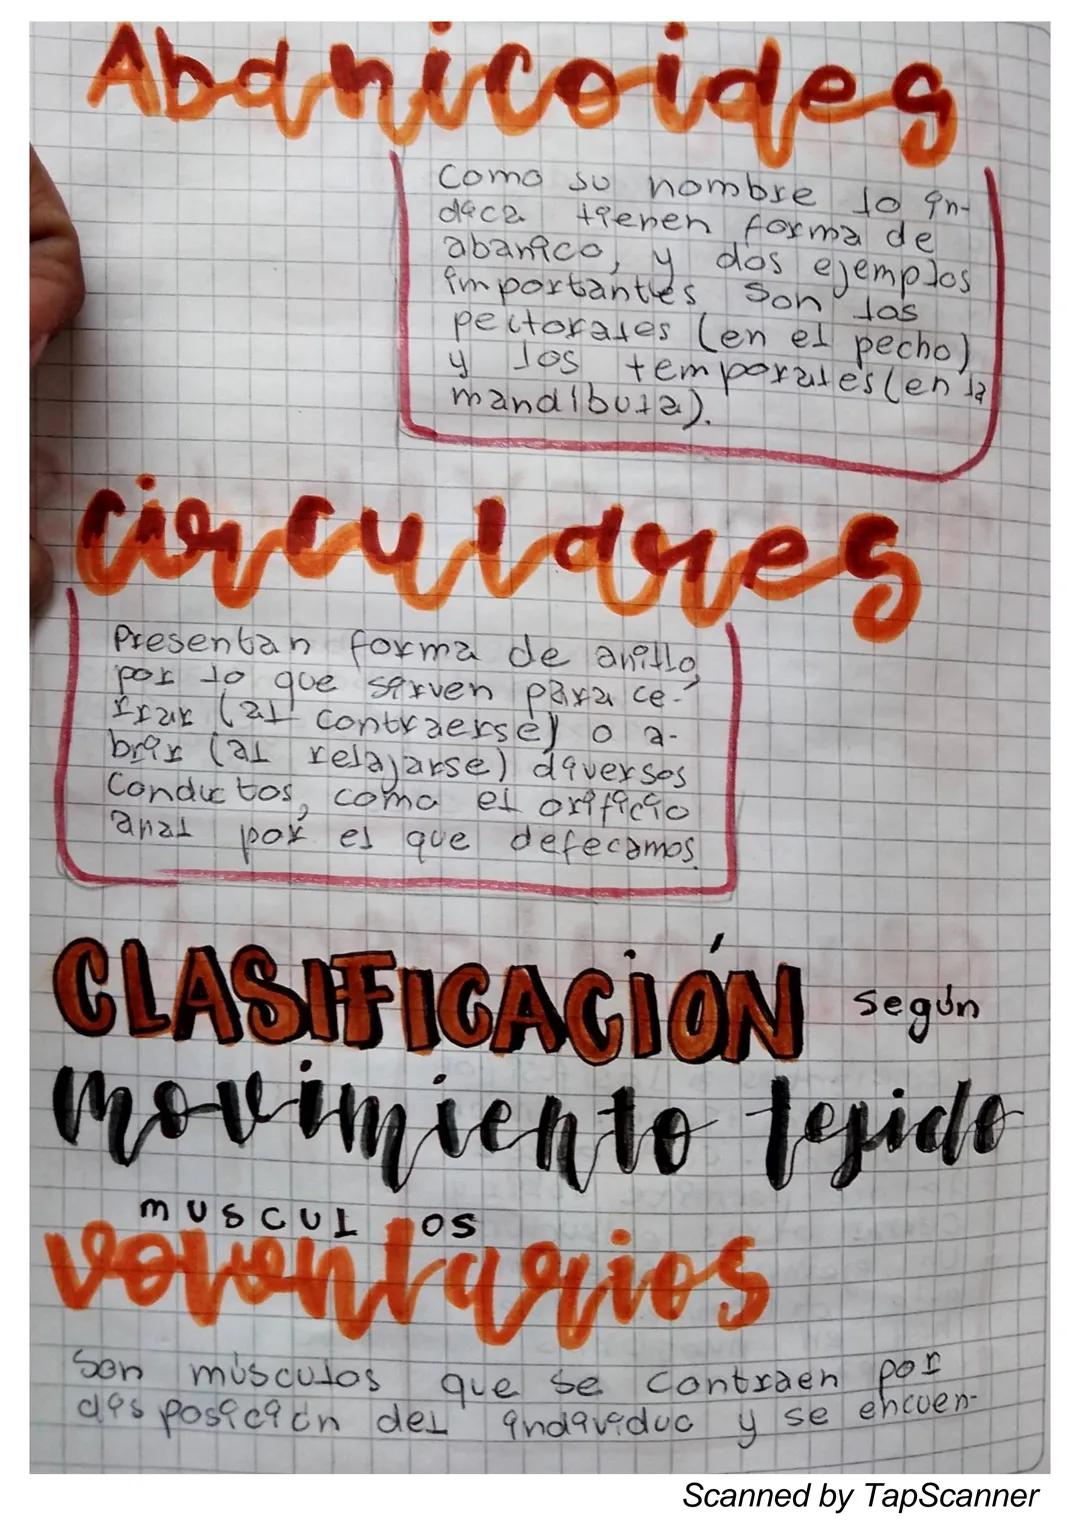 Abanicoides
Como su nombre lo in-
dica tienen forma de
abanico, y dos ejemplos
importantes son los
pectorales (en el pecho)
y los temporales (en la
mandibula).
circulares
Presentan forma de anillo,
por lo que sirven para ce-
rrar (al contraerse) o a-
brir (al relajarse) diversos
Conductos, como el orificio
anal por el que defecamos.
CLASIFICACIÓN según
movimiento tejido
musculos
vovontarios
Son músculos que se contraen por
disposición del individuo y se encuen-
Scanned by TapScanner